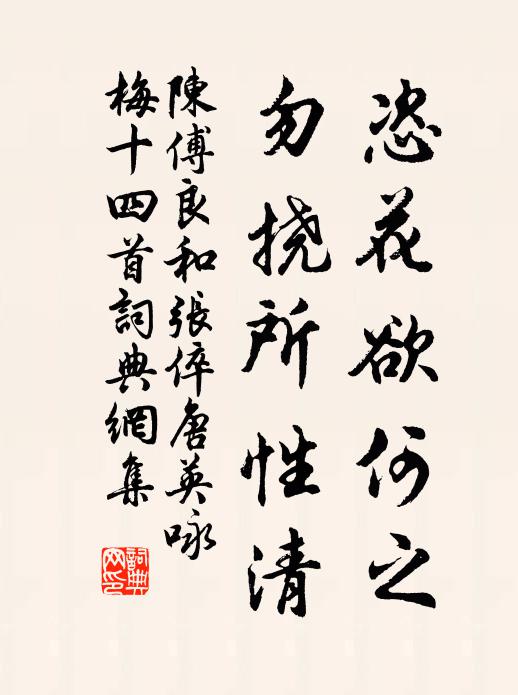 恣花欲何之
勿撓所性清
陳傅良和張倅唐英咏
梅十四首詞典網集
詞典網印